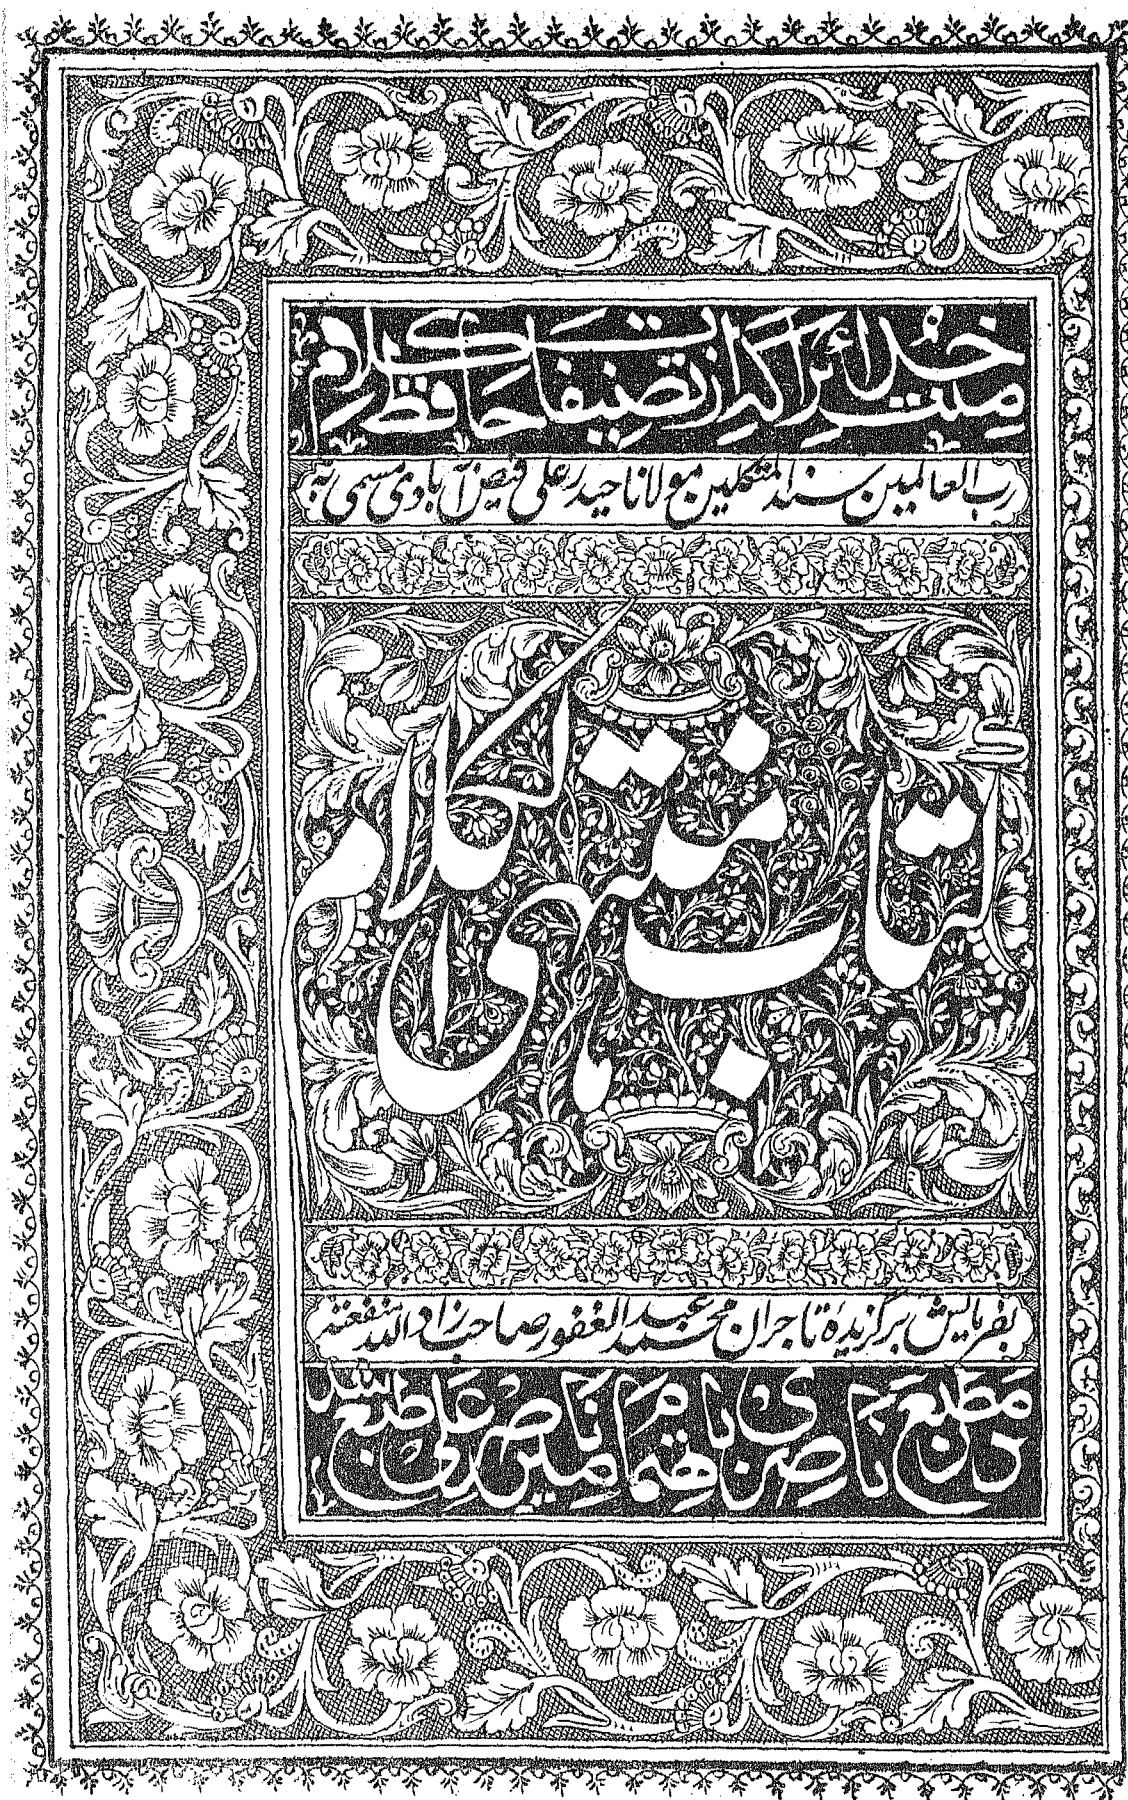 منت مر خدائراکه از تصنیفات حافظ کلام
رب العالمین سند المتکلمین مولانا حیدر علی فیض آبادی مسمی به
کتاب منتهی الکلام
بفرمایش برگزیده تاجران محمد عبد الغفور صاحب زاد الله منفعته
در مطبع ناصری باهتمام ناصر علی طبع شد